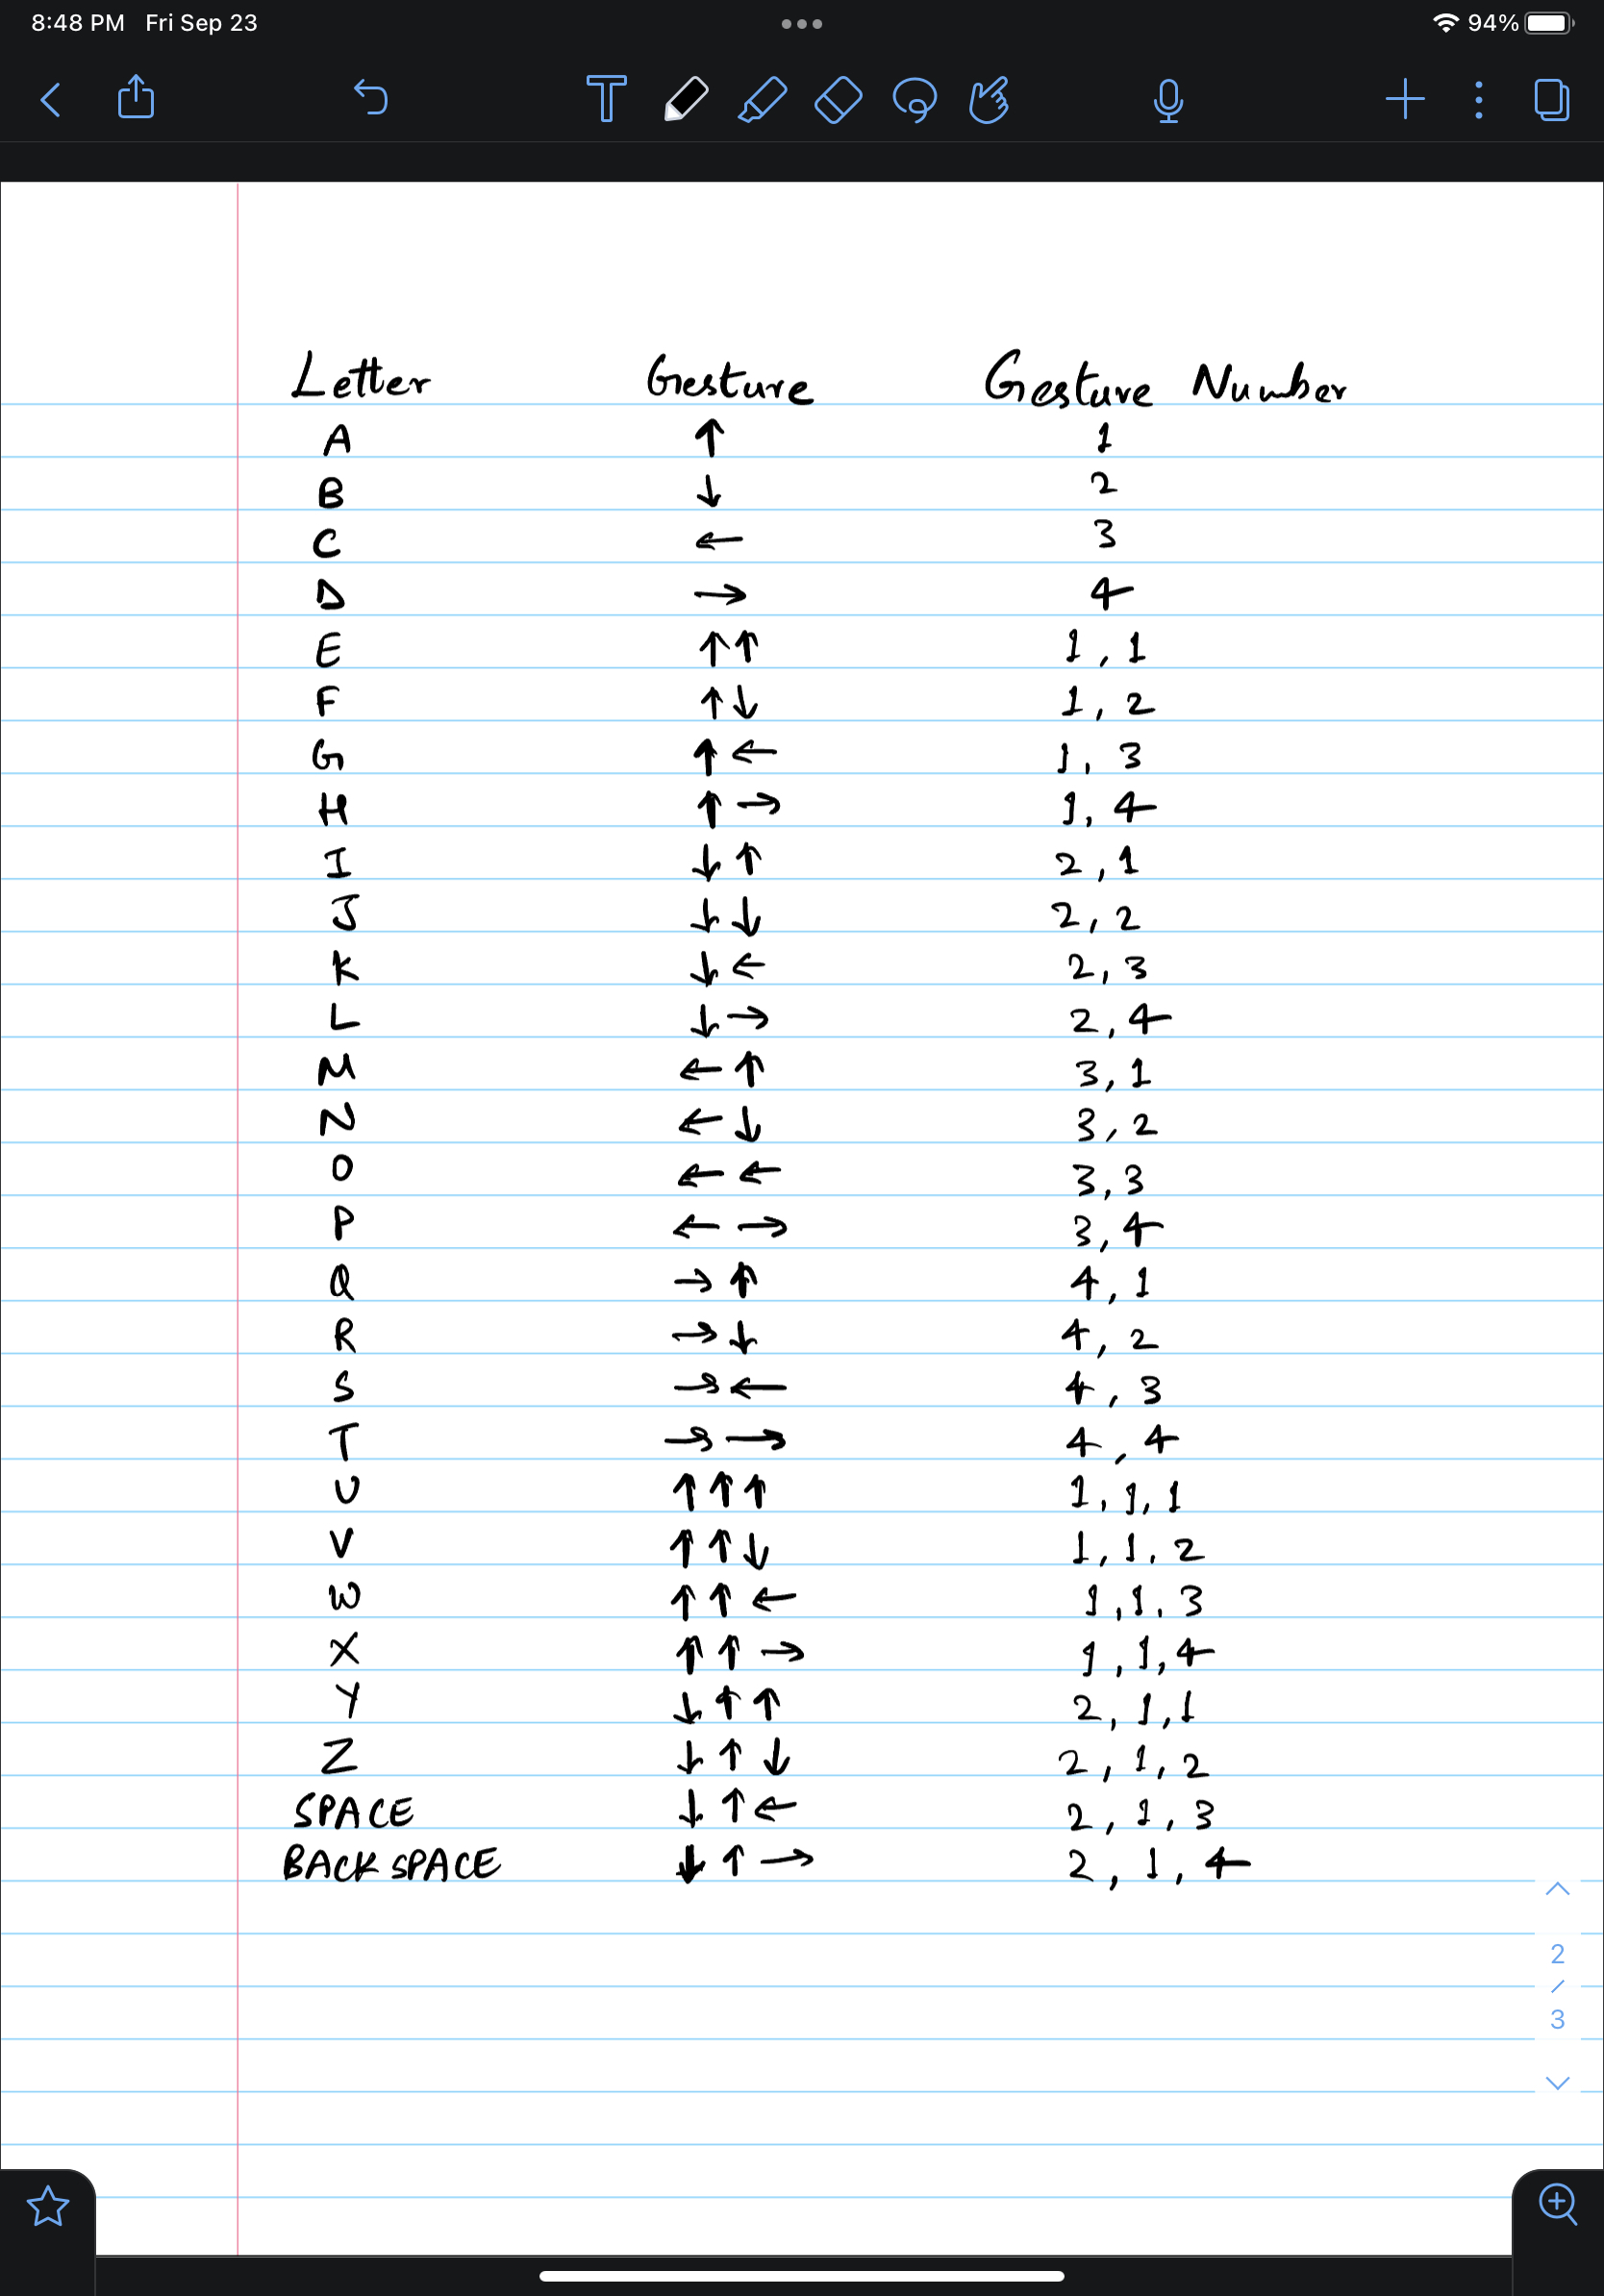 8:48 PM Fri Sep 23 94%
Letter Gesture Gesture Number
A ↑ 1
B ↓ 2
C ← 3
D → 4
E ↑↑ 1, 1
F ↑↓ 1, 2
G ↑← 1, 3
H ↑→ 1, 4
I ↓↑ 2, 1
J ↓↓ 2, 2
K ↓← 2, 3
L ↓→ 2, 4
M ←↑ 3, 1
N ←↓ 3, 2
O ←← 3, 3
P ←→ 3, 4
Q →↑ 4, 1
R →↓ 4, 2
S →← 4, 3
T →→ 4, 4
U ↑↑↑ 1, 1, 1
V ↑↑↓ 1, 1, 2
W ↑↑← 1, 1, 3
X ↑↑→ 1, 1, 4
Y ↓↑↑ 2, 1, 1
Z ↓↑↓ 2, 1, 2
SPACE ↓↑← 2, 1, 3
BACKSPACE ↓↑→ 2, 1, 4
2
/
3